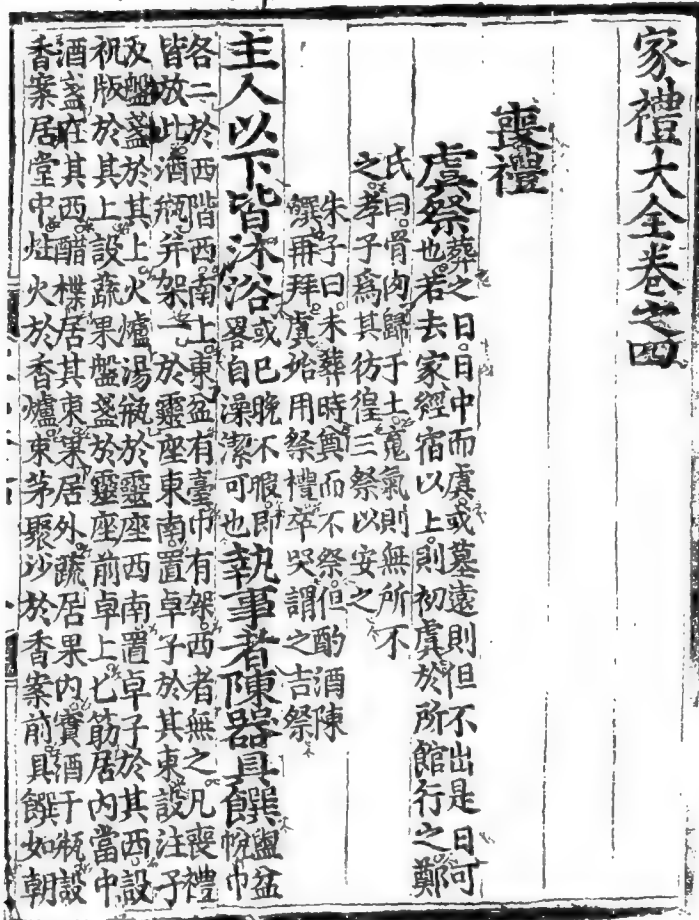 家禮大全卷之四
喪禮
虞祭葬之日日中而虞或墓遠則但不出是日可
也若去家經宿以上則初虞於所館行之鄭
氏曰骨肉歸于土䰟氣則無所不
之孝子爲其彷徨三祭以安之
朱子曰未葬時奠而不祭但酌酒陳
饌再拜虞始用祭禮卒哭謂之吉祭
主人以下皆沐浴或已晚不暇即畧自澡潔可也執事者陳器具饌盥盆帨巾
各二於西階西南上東盆有臺巾有架西者無之凡喪禮
皆放此酒瓶并架一於靈座東南置卓子於其東設注子
及盤盞於其上火爐湯瓶於靈座西南置卓子於其西設
祝版於其上設蔬果盤盞於靈座前卓上匕筯居內當中
酒盞在其西醋楪居其東果居外蔬居果內實酒于瓶設
香案居堂中炷火於香爐束茅聚沙於香案前具饌如朝